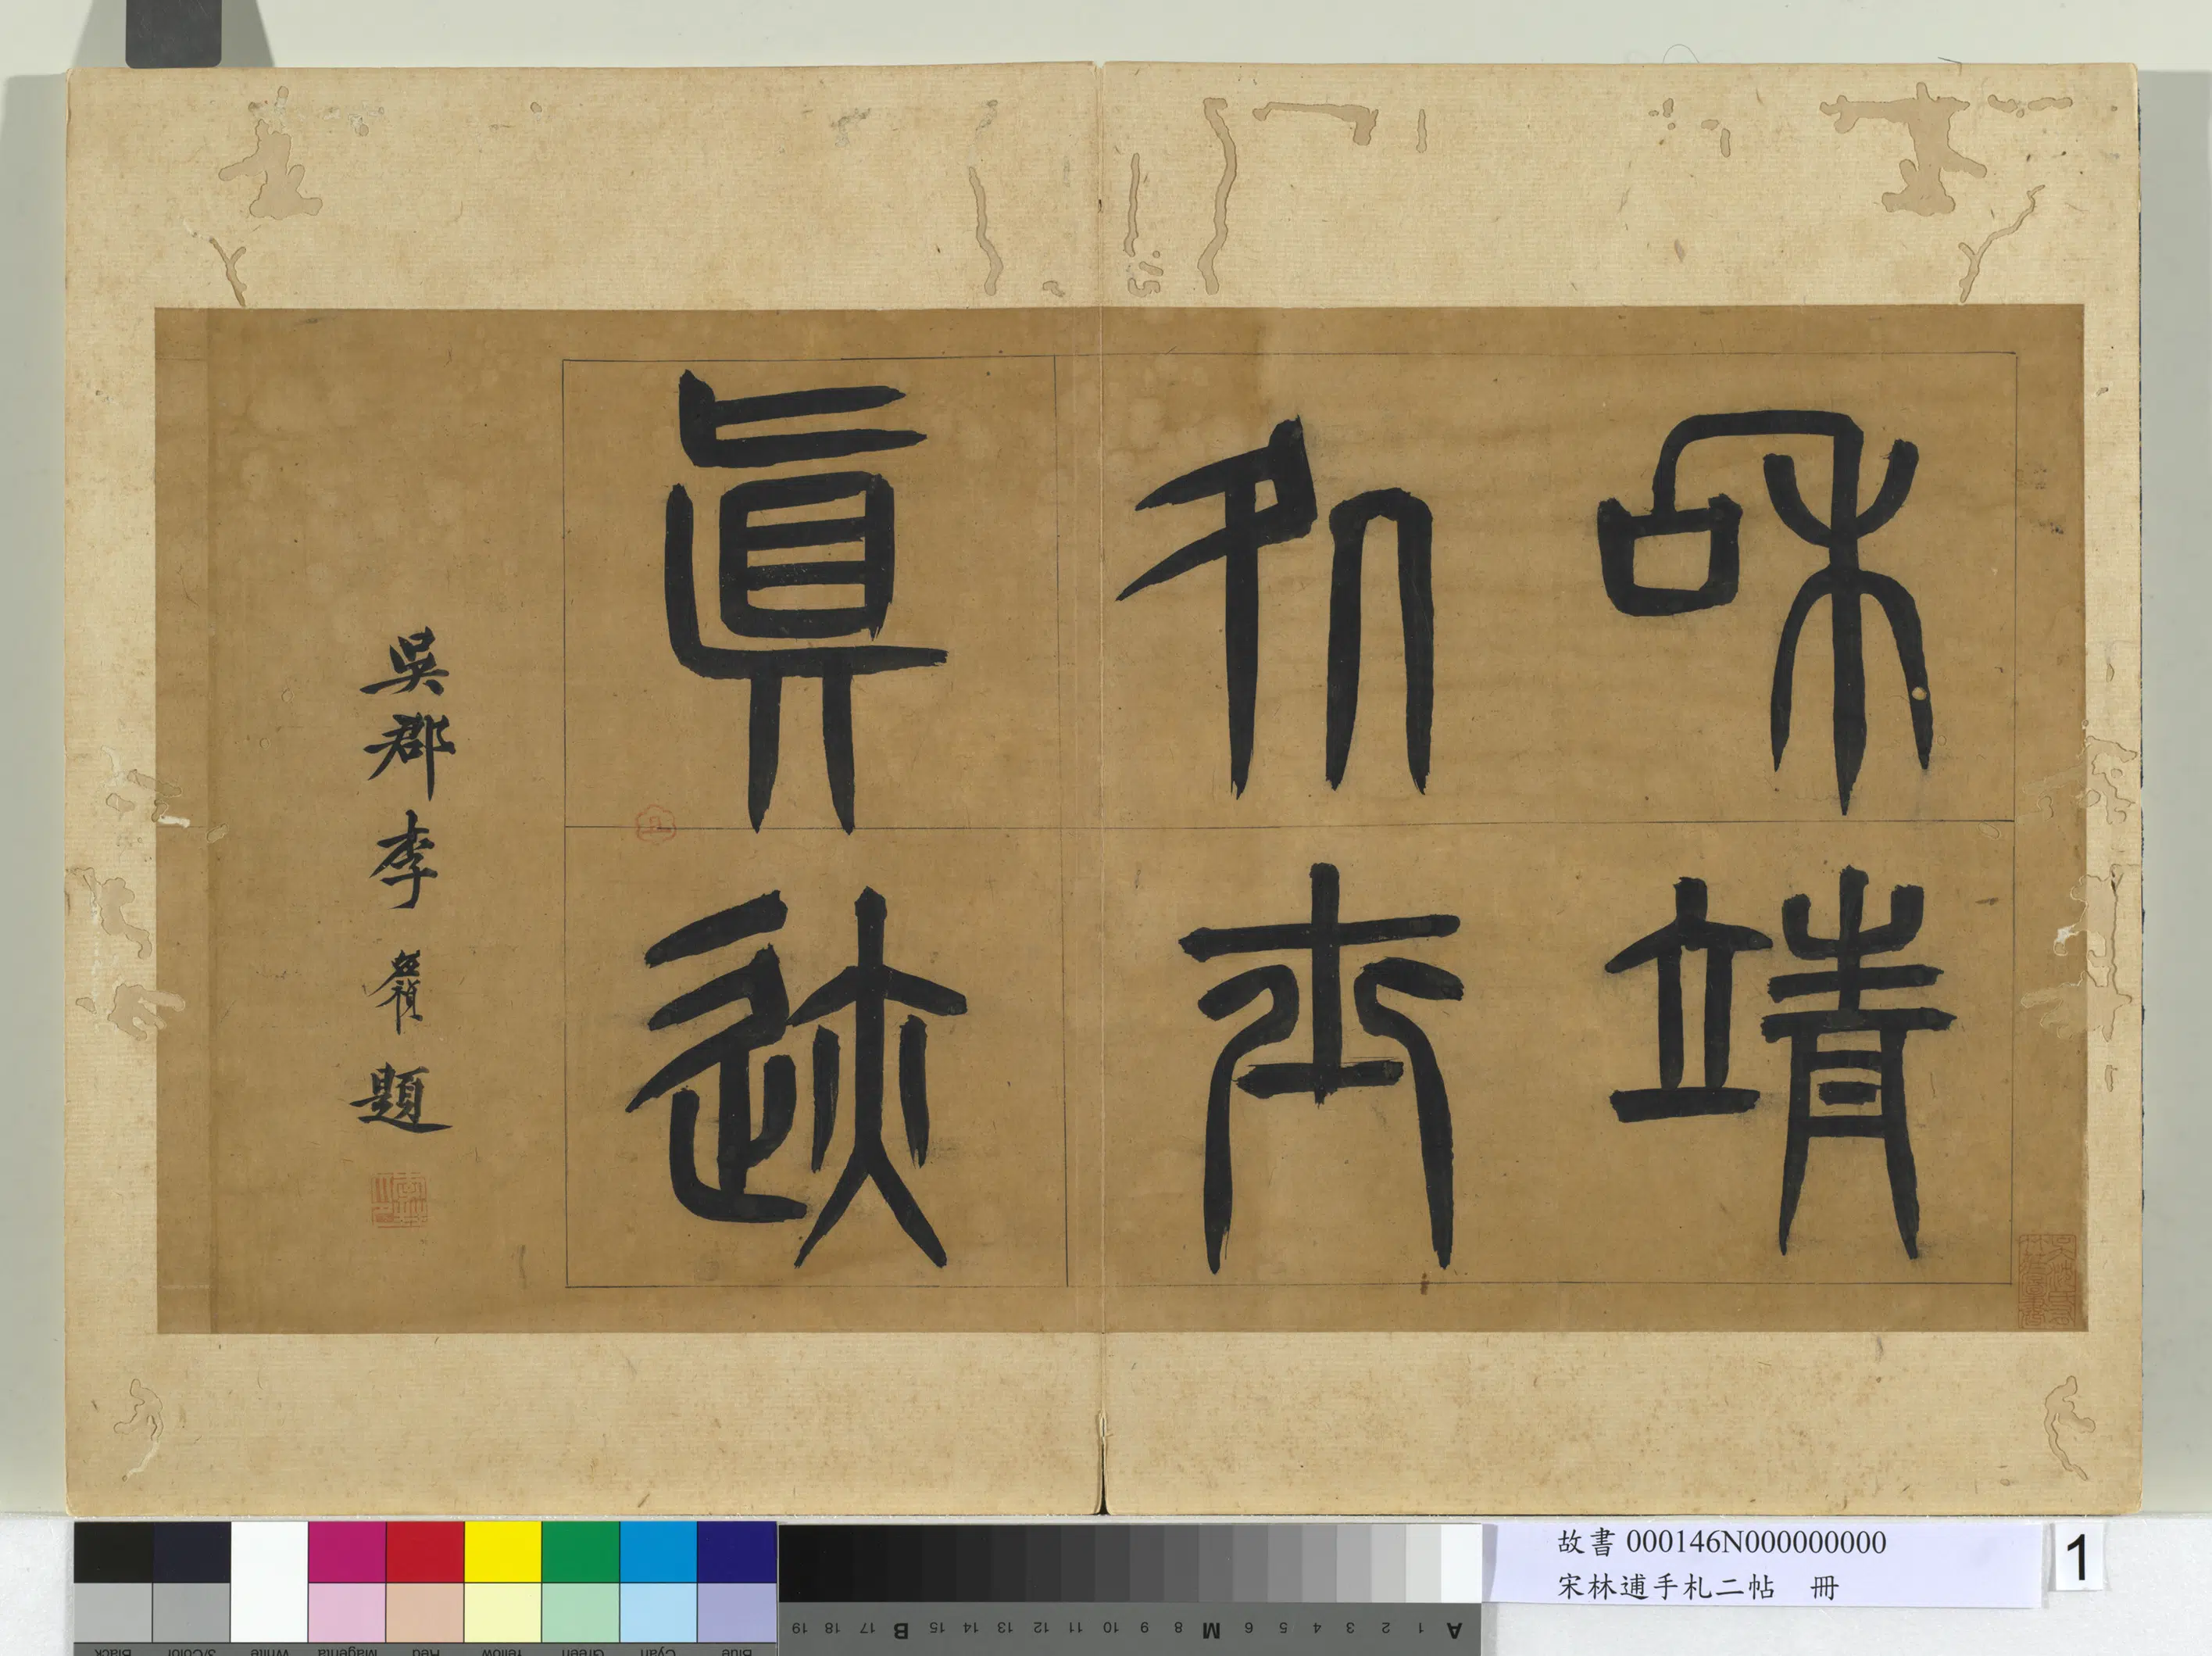 和靖
眞迹
吳郡李應禎題
故書 000146N000000000
宋林逋手札二帖 冊
1
A 1 2 3 4 5 6 M 8 9 10 11 12 13 14 15 B 17 18 19
Blue Cyan Green Yellow Red Magenta White 3/Color Black